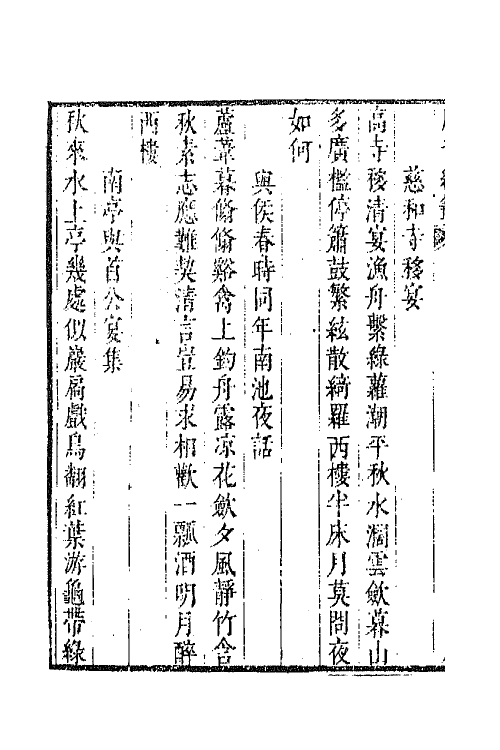 慈和寺移宴
高寺移清宴漁舟繫綠蘿潮平秋水濶雲歛暮山
多廣檻停簫鼓繁絃散綺羅西樓半床月莫問夜
如何
與侯春時同年南池夜話
蘆葦暮脩脩谿禽上釣舟露凉花歛夕風靜竹含
秋素志應難契清言豈易求相歡一瓢酒明月醉
西樓
南亭與首公宴集
秋來水上亭幾處似巖扃戲鳥翻紅葉游龜帶綠